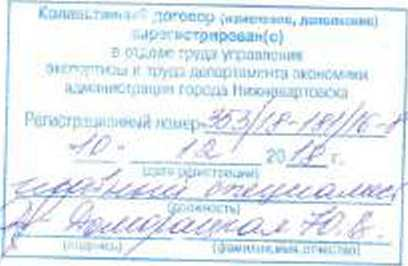 Коллективный договор (изменение, дополнение)
зарегистрирован(о)
в отделе труда управления
экспертизы и труда департамента экономики
администрации города Нижневартовска
Регистрационный номер 353/18-181/16-8
"10" 12 2018 г.
(дата регистрации)
главный специалист
(должность)
Ю.В.
(подпись) (фамилия, имя, отчество)